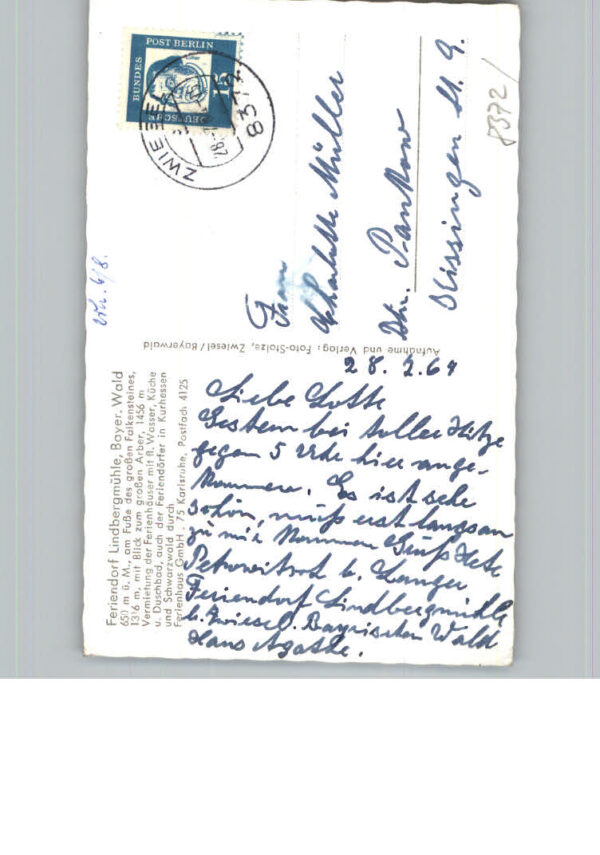 Feriendorf Lindbergmühle, Bayer. Wald
650 m ü. M., am Fuße des großen Falkensteines,
1316 m, mit Blick zum großen Arber, 1456 m
Vermietung der Ferienhäuser mit fl. Wasser, Küche
u. Duschbad, auch der Feriendörfer in Kurhessen
und Schwarzwald durch
Ferienhaus GmbH · 75 Karlsruhe, Postfach 4125
28.7.64
Liebe Lotte
Gestern bei toller Hitze
gegen 5 Uhr hier ange-
kommen. Es ist sehr
schön, muß erst langsam
zu mir kommen Gruß
b. Langer
Feriendorf Lindbergmühle
b. Zwiesel. Bayrischen Wald
Haus Agathe.
Aufnahme und Verlag: Foto-Stolze, Zwiesel/Bayerwald
DEUTSCHE BUNDESPOST BERLIN
15
ZWIESEL
8372
28.
Frau
Charlotte Müller
Pankow
Kissingen
8372/
6/8.